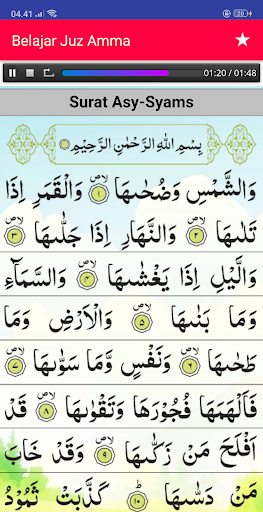 04.41
Belajar Juz Amma
01:20 / 01:48
Surat Asy-Syams
بِسْمِ اللهِ الرَّحْمٰنِ الرَّحِيْمِ
وَالشَّمْسِ وَضُحٰىهَا ۙ ١ وَالْقَمَرِ اِذَا
تَلٰىهَا ۙ ٢ وَالنَّهَارِ اِذَا جَلّٰىهَا ۙ ٣
وَالَّيْلِ اِذَا يَغْشٰىهَا ۙ ٤ وَالسَّمَاۤءِ
وَمَا بَنٰىهَا ۙ ٥ وَالْاَرْضِ وَمَا
طَحٰىهَا ۙ ٦ وَنَفْسٍ وَّمَا سَوّٰىهَا ۙ ٧
فَاَلْهَمَهَا فُجُوْرَهَا وَتَقْوٰىهَا ۙ ٨ قَدْ
اَفْلَحَ مَنْ زَكّٰىهَا ۙ ٩ وَقَدْ خَابَ
مَنْ دَسّٰىهَا ۗ ١٠ كَذَّبَتْ ثَمُوْدُ